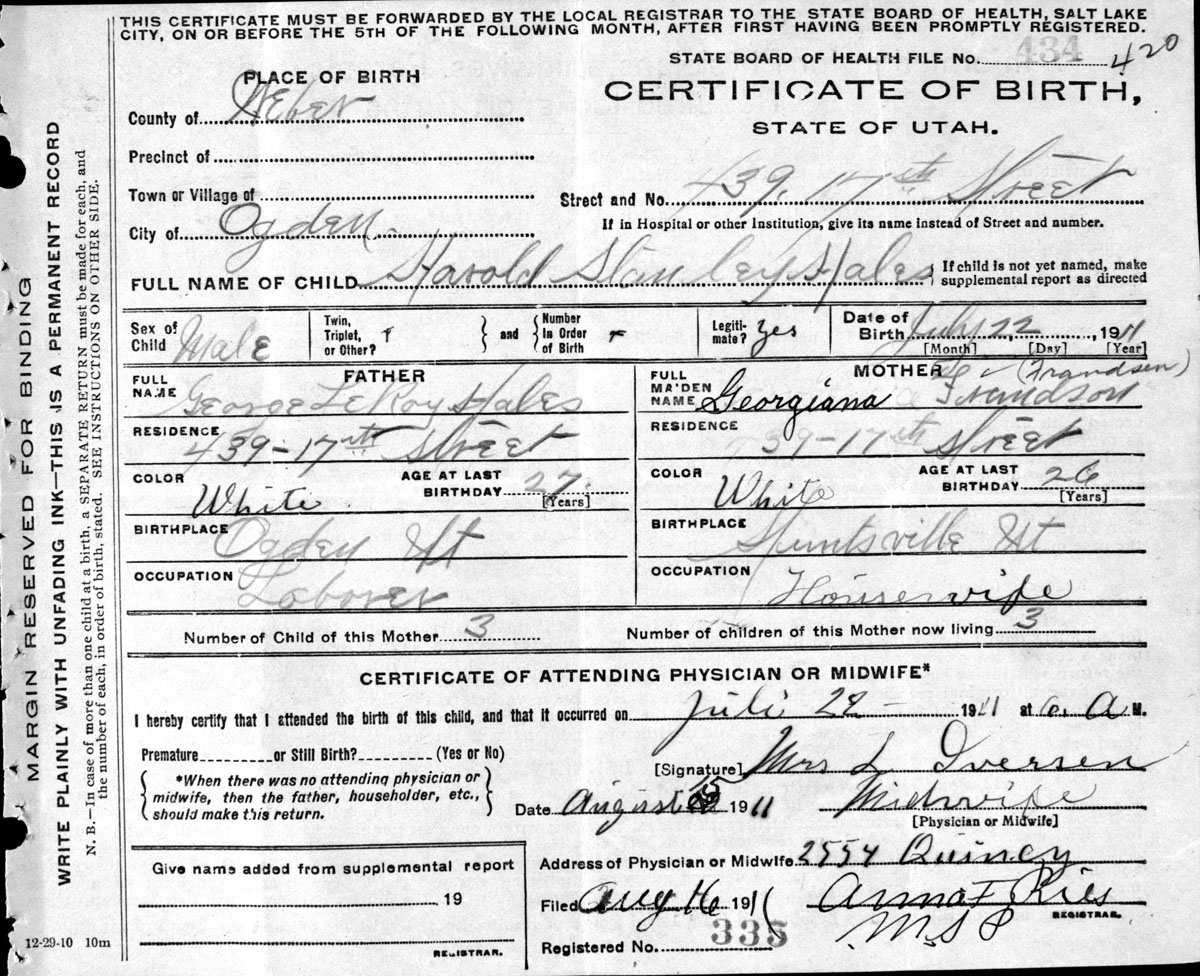 THIS CERTIFICATE MUST BE FORWARDED BY THE LOCAL REGISTRAR TO THE STATE BOARD OF HEALTH, SALT LAKE
CITY, ON OR BEFORE THE 5TH OF THE FOLLOWING MONTH, AFTER FIRST HAVING BEEN PROMPTLY REGISTERED.
STATE BOARD OF HEALTH FILE No. 434 420
PLACE OF BIRTH
CERTIFICATE OF BIRTH,
STATE OF UTAH.
County of Weber
Precinct of
Town or Village of
Street and No. 439. 17th Street
City of Ogden
If in Hospital or other Institution, give its name instead of Street and number.
FULL NAME OF CHILD Harold Stanley Hales { If child is not yet named, make
supplemental report as directed
Sex of Child Male
Twin, Triplet, or Other?
} and { Number in Order of Birth
Legiti-mate? yes
Date of Birth July 22, 1911
[Month] [Day] [Year]
FATHER
FULL NAME George LeRoy Hales
RESIDENCE 439-17th Street
COLOR White
AGE AT LAST BIRTHDAY 27
[Years]
BIRTHPLACE Ogden Ut
OCCUPATION Laborer
MOTHER
(Frandsen)
FULL MAIDEN NAME Georgiana Frandson
RESIDENCE 439-17th Street
COLOR White
AGE AT LAST BIRTHDAY 26
[Years]
BIRTHPLACE Huntsville Ut
OCCUPATION Housewife
Number of Child of this Mother 3
Number of children of this Mother now living 3
CERTIFICATE OF ATTENDING PHYSICIAN OR MIDWIFE*
I hereby certify that I attended the birth of this child, and that it occurred on Juli 22 - 1911 at 6 A M.
Premature or Still Birth? (Yes or No)
{ *When there was no attending physician or
midwife, then the father, householder, etc.,
should make this return. }
[Signature] Mrs L Iversen
Date August 15 1911
Midwife
[Physician or Midwife]
Give name added from supplemental report
19
REGISTRAR.
Address of Physician or Midwife 2554 Quincy
Filed Aug 16 1911 Anna F Ries
REGISTRAR.
Registered No. 335
12-29-10 10m
MARGIN RESERVED FOR BINDING
WRITE PLAINLY WITH UNFADING INK—THIS IS A PERMANENT RECORD
N. B.—In case of more than one child at a birth, a SEPARATE RETURN must be made for each, and
the number of each, in order of birth, stated. SEE INSTRUCTIONS ON OTHER SIDE.